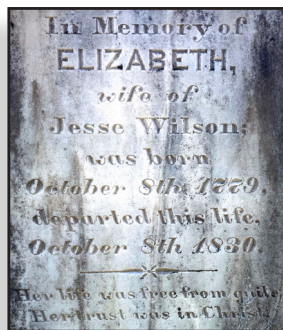 In Memory of
ELIZABETH,
wife of
Jesse Wilson;
was born
October 8th 1779,
departed this life,
October 8th 1830.
Her life was free from guile,
Her trust was in Christ.